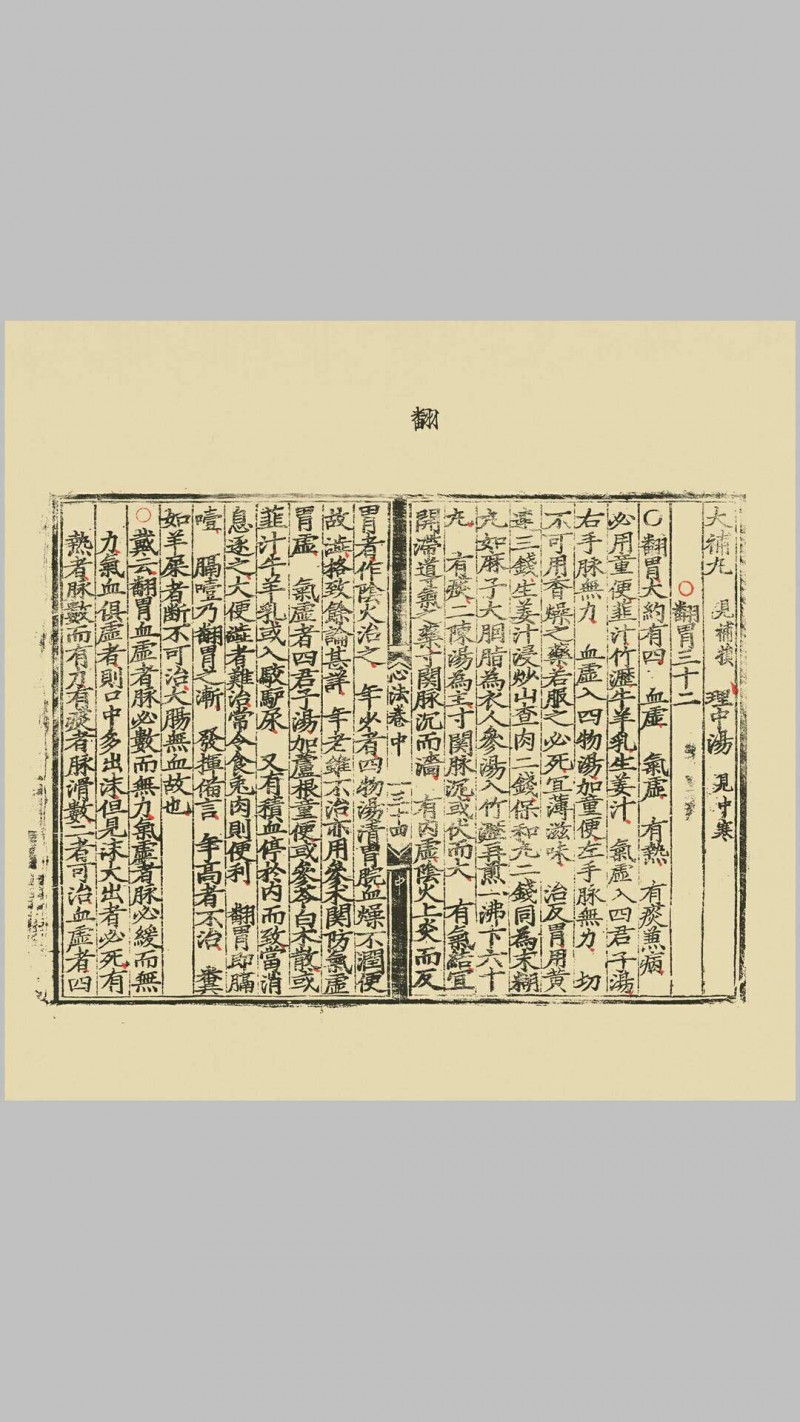 翻
大補丸 見補損 理中湯 見中寒
○翻胃三十二
○翻胃大約有四 血虛 氣虛 有熱 有痰兼病
必用童便韮汁竹瀝牛羊乳生姜汁 氣虛入四君子湯
右手脉無力 血虛入四物湯加童便左手脉無力 切
不可用香燥之藥若服之必死宜薄滋味 治反胃用黃
連三錢生姜汁浸炒山查肉二錢保和丸二錢同為末糊
丸如麻子大胭脂為衣人參湯入竹瀝再煎一沸下六十
丸 有痰二陳湯為主寸関脉沉或伏而大 有氣結宜
開滯導氣之藥寸関脉沉而濇 有內虛陰火上炎而反
心法卷中 一三十四
胃者作陰火治之 年少者四物湯清胃脘血燥不潤便
故澁格致餘論甚詳 年老雖不治亦用參术関防氣虛
胃虛 氣虛者四君子湯加蘆根童便或參苓白术散或
韮汁牛羊乳或入驢尿 又有積血停於內而致當消
息逐之大便澁者難治常令食兔肉則便利 翻胃即膈
噎 膈噎乃翻胃之漸 發揮俻言 年高者不治 糞
如羊屎者断不可治大腸無血故也
○戴云翻胃血虛者脉必數而無力氣虛者脉必緩而無
力氣血俱虛者則口中多出沫但見沫大出者必死有
熱者脉數而有力有痰者脉滑數二者可治血虛者四